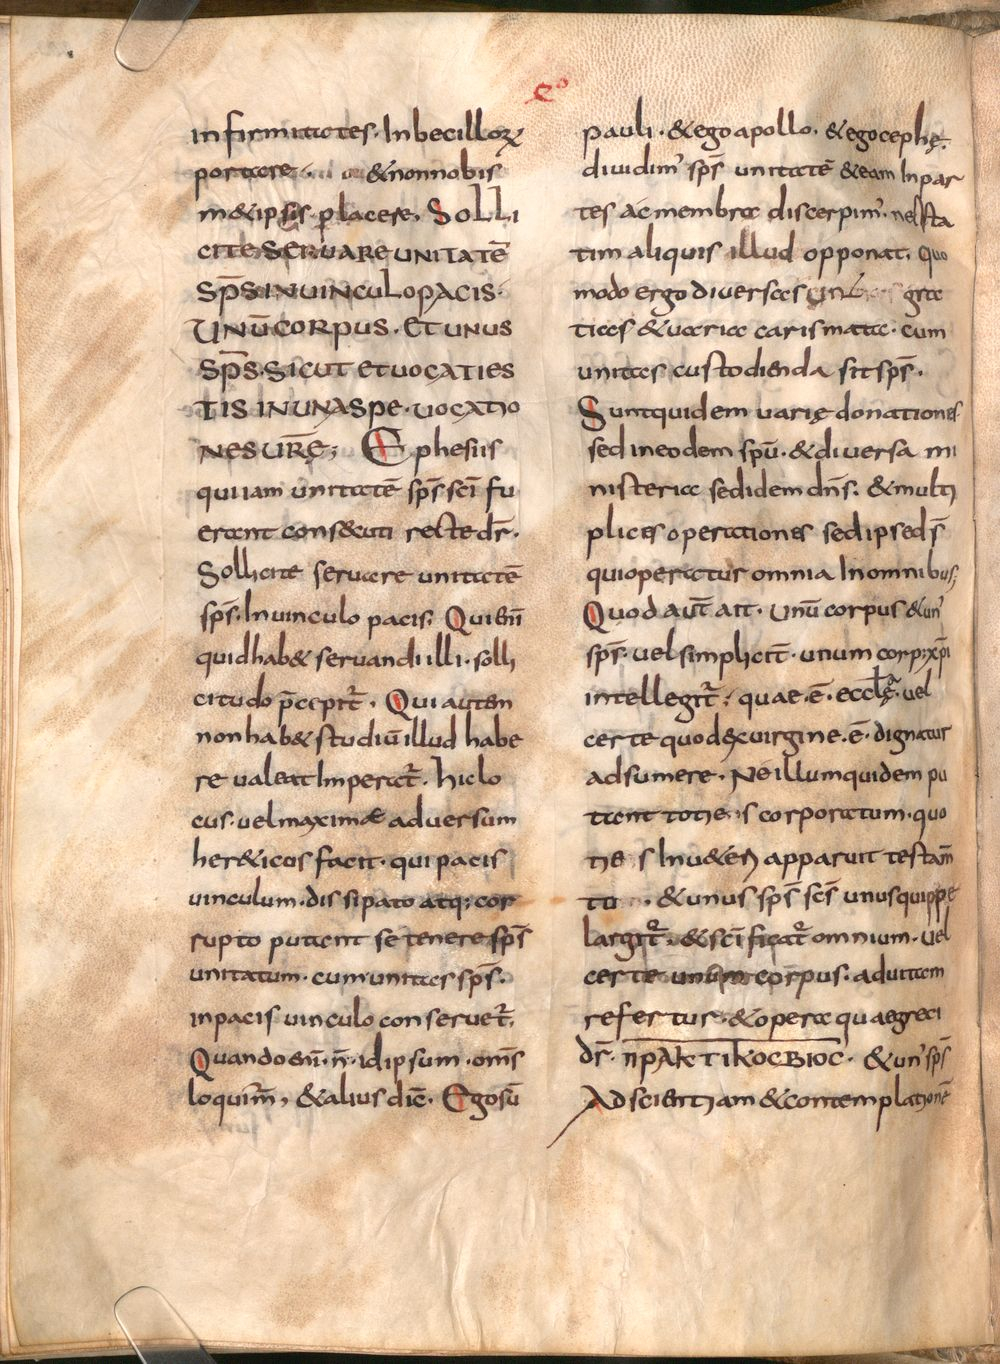 eº
infirmitates. Inbecilloꝝ
portare &nonnobis
m&ipsis placere. SOLLI
CITESERUAREUNITATĒ
SP̄SINUINCULOPACIS.
UNŪCORPUS. ETUNUS
SP̄S.SICUT ETUOCATIES
TISINUNASPE.UOCATIO
NESUR̄Ę; Ephesiis
quiiam unitatē sp̄s sc̄i fu
erant cons&cuti recte dr̄.
Sollicite seruare unitatē
sp̄s. Inuinculo pacis. Qui eni̅
quidhab& seruandi illi. solli
citudo p̄cepit̄. Qui autem
nonhab& studiū illud habe
re ualeat Imperat̄. hiclo
cus. uelmaximæ aduersum
her&icos facit. qui pacis
uinculum. dissipato atq; cor
rupto putant se tenere sp̄s
unitatum. cumunitas sp̄s.
inpacis uinculo conseruet̄.
Quando eni̅. n̄. idipsum. om̄s
loquim̄, & alius dic̄. Egosū
pauli. &ego apollo. &egocephę.
diuidim᾽ sp̄s unitatē &eam Inpar
tes acmembra discerpim᾽. nesta
tim aliquis illud opponat. Quo
modo ergo diuersas gra
tias &uaria carismata. cum
unitas custodienda sit sp̄s.
Suntquidem uarię donationes
sed ineodem spū. &diuersa mi
nisteria sedidem dn̄s. &multi
plices operationes sedipsed̄s
quioperatur omnia Inomnibus;
Quod aut̄ ait. Unū corpus &un᾽
sp̄s. uel simplicit̄. unum corp; xp̄i
intellegit̄; quae.ē. ecclę̄. uel
certe quodexuirgine.ē. dignatur
adsumere. Neillumquidem pu
tant totiens corporatum. quo
tiens Inu&eri apparuit testam̄
to. &unus sp̄s sc̄s unusquippe
largit̄. &sc̄ificat̄ omnium. uel
certe unum corpus. aduitam
refertur. &opera quaegreci
dr̄. ΠΡΑΚΤΙΚΟϹΒΙΟϹ. &un᾽ sp̄s
Adscientiam&contemplationē